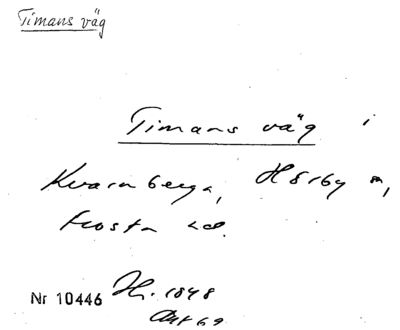 Timans väg
Timans väg i
Kvarnberga, Hörby sn,
Frosta hd.
Nr 10446 Hr. 1848
Akt 69